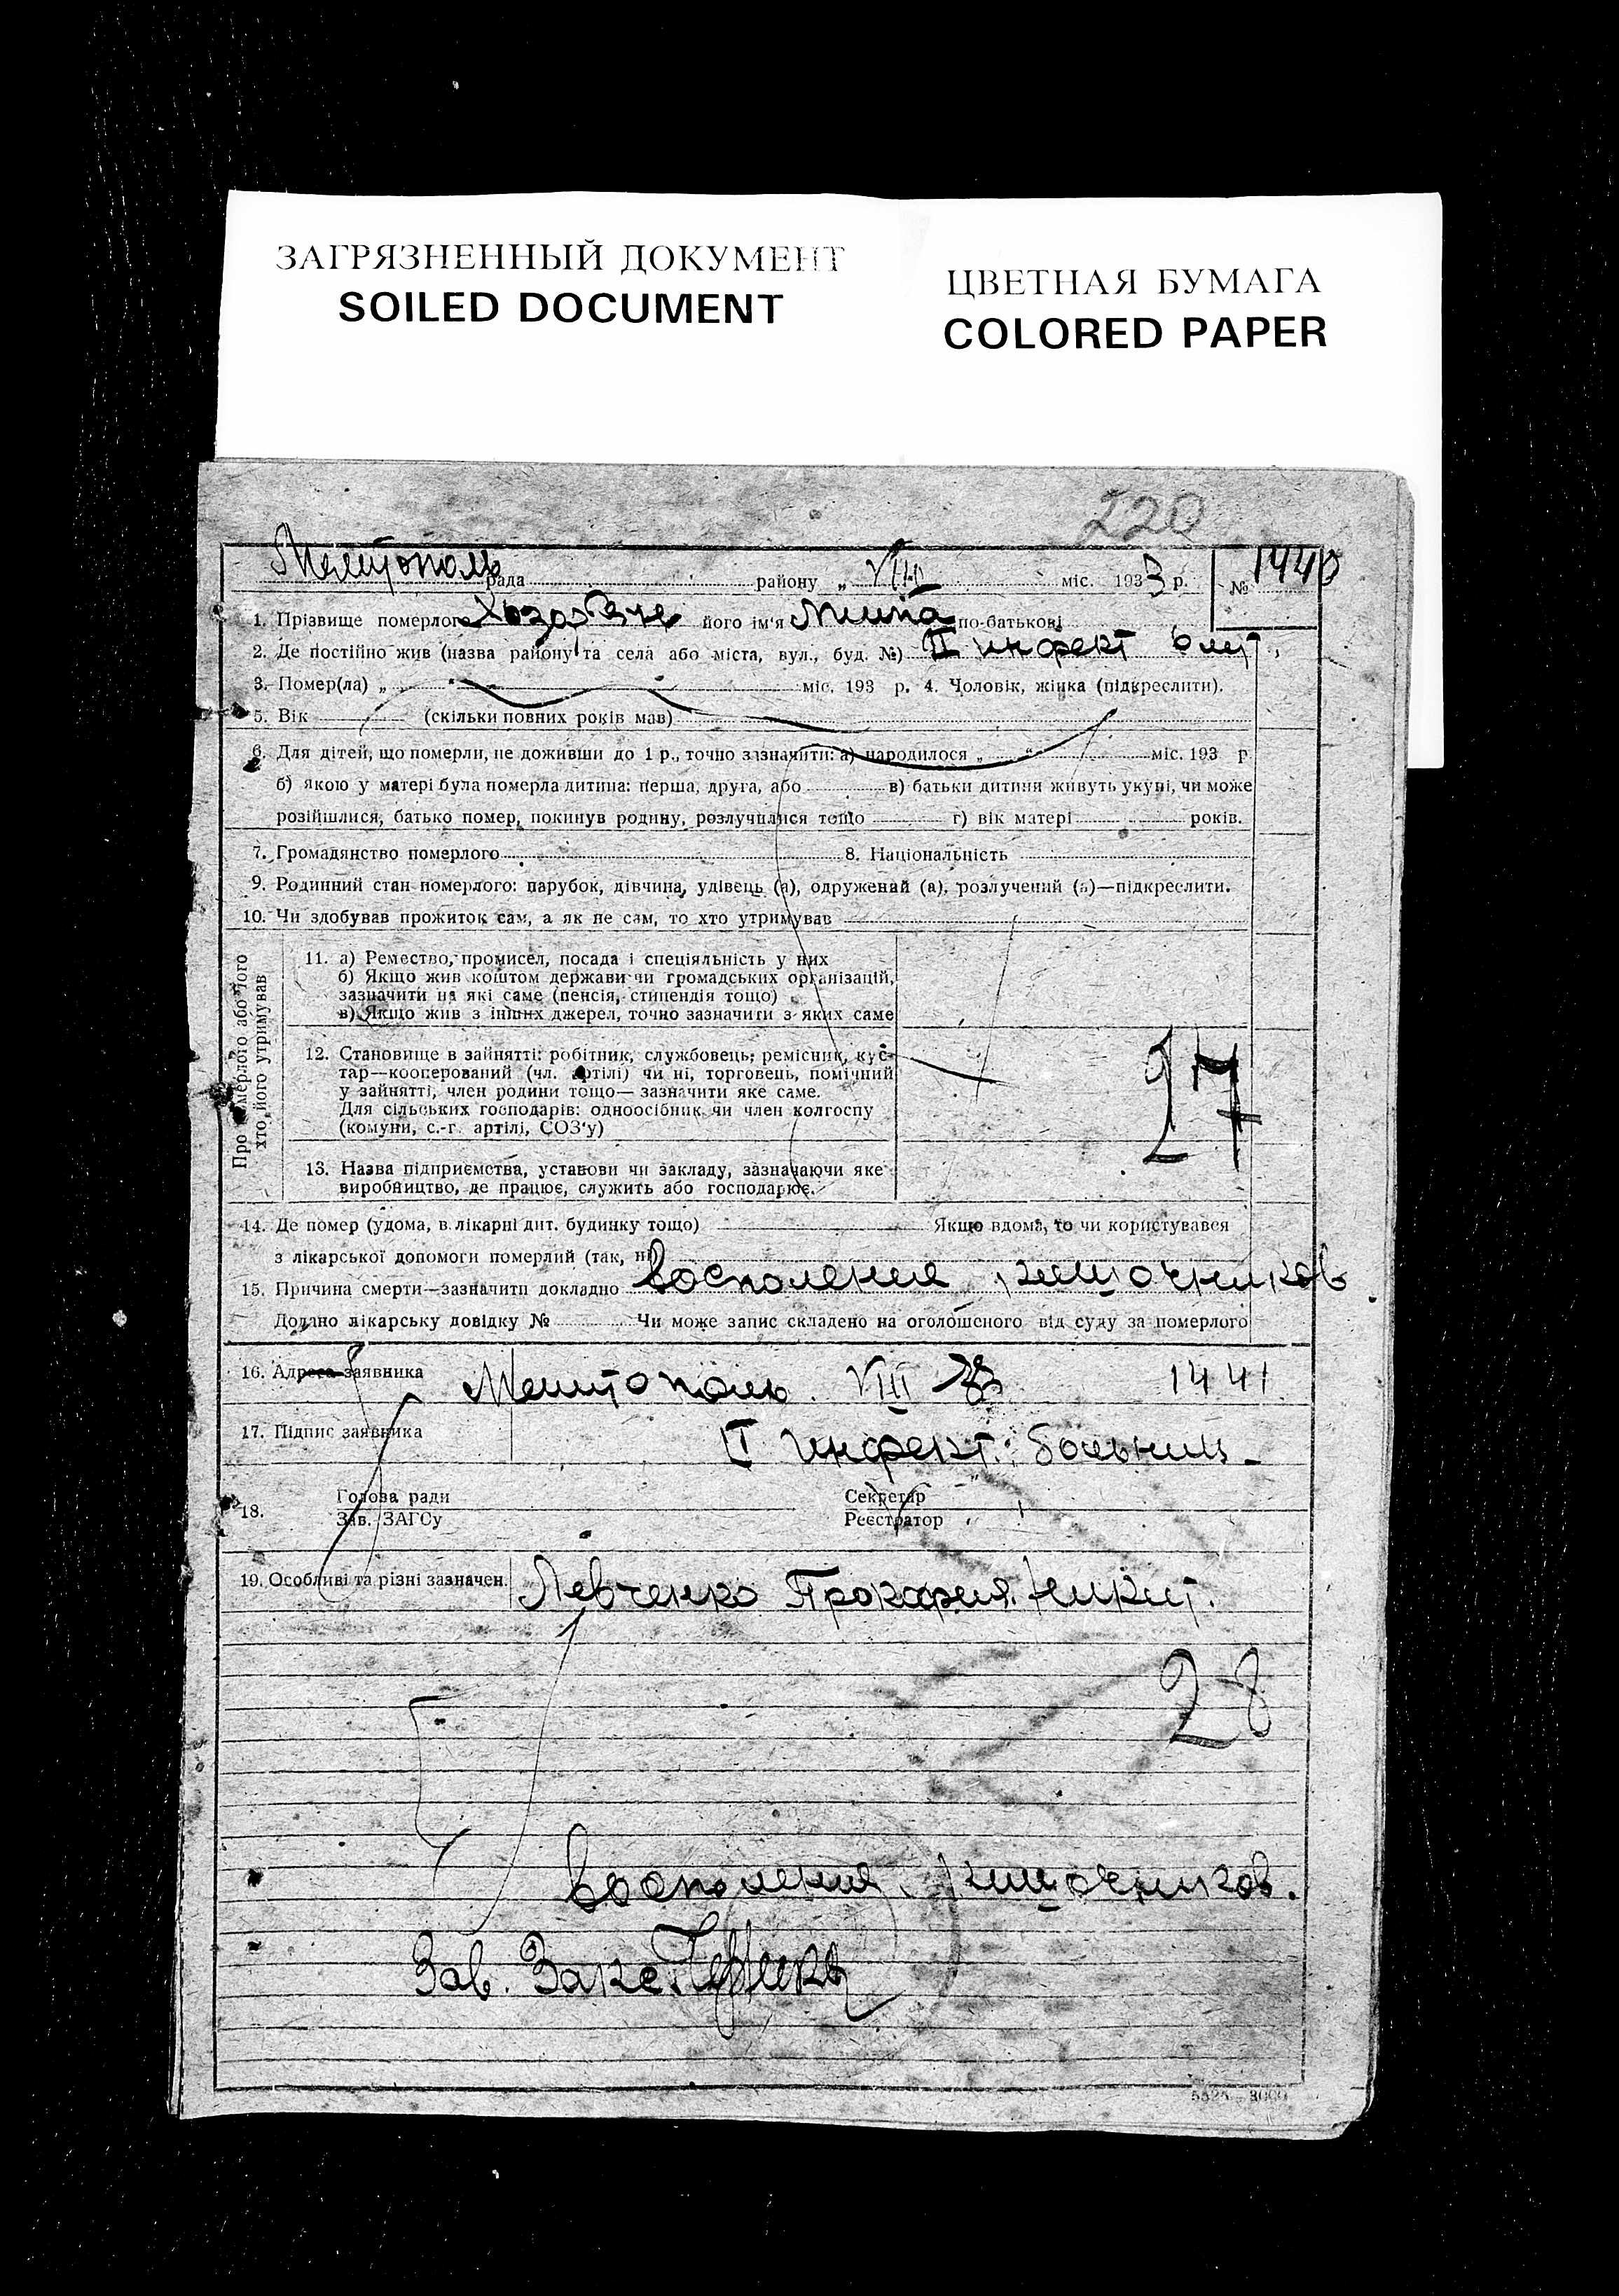 ЗАГРЯЗНЕННЫЙ ДОКУМЕНТ
SOILED DOCUMENT
ЦВЕТНАЯ БУМАГА
COLORED PAPER
220
Мелитополь рада району „ VIII міс. 1933 р. № 1440
1. Прізвище померлого його ім'я по-батькові
2. Де постійно жив (назва району та села або міста, вул., буд. №) II инфект
3. Помер(ла) „ “ міс. 193 р. 4. Чоловік, жінка (підкреслити).
5. Вік (скільки повних років мав)
6. Для дітей, що померли, не доживши до 1 р., точно зазначити: а) народилося „ “ міс. 193 р
б) якою у матері була померла дитина: перша, друга, або в) батьки дитини живуть укупі, чи може
розійшлися, батько помер, покинув родину, розлучилися тощо г) вік матері років.
7. Громадянство померлого 8. Національність
9. Родинний стан померлого: парубок, дівчина, удівець (а), одружений (а), розлучений (а)—підкреслити.
10. Чи здобував прожиток сам, а як не сам, то хто утримував
Про померлого або того хто його утримував
11. а) Ремество, промисел, посада і спеціяльність у них
б) Якщо жив коштом держави чи громадських організацій,
зазначити на які саме (пенсія, стипендія тощо)
в) Якщо жив з інших джерел, точно зазначити з яких саме
12. Становище в зайнятті: робітник, службовець, ремісник, кус-
тар—кооперований (чл. артілі) чи ні, торговець, помічний
у зайнятті, член родини тощо—зазначити яке саме.
Для сільських господарів: одноосібник чи член колгоспу
(комуни, с.-г. артілі, СОЗ'у)
27
13. Назва підприємства, установи чи закладу, зазначаючи яке
виробництво, де працює, служить або господарює.
14. Де помер (удома, в лікарні дит. будинку тощо) Якщо вдома, то чи користувався
з лікарської допомоги померлий (так, ні)
15. Причина смерти—зазначити докладно Восполения кишочников
Додано лікарську довідку № Чи може запис складено на оголошеного від суду за померлого
16. Адреса заявника Мелитополь VIII 33 1441
17. Підпис заявника II инфект. больниц
18. Голова ради Секретар
Зав. ЗАГСу Реєстратор
19. Особливі та різні зазначен. Левченко Прокофия Никит.
28
Восполения кишочников.
Зав.
5525—3000